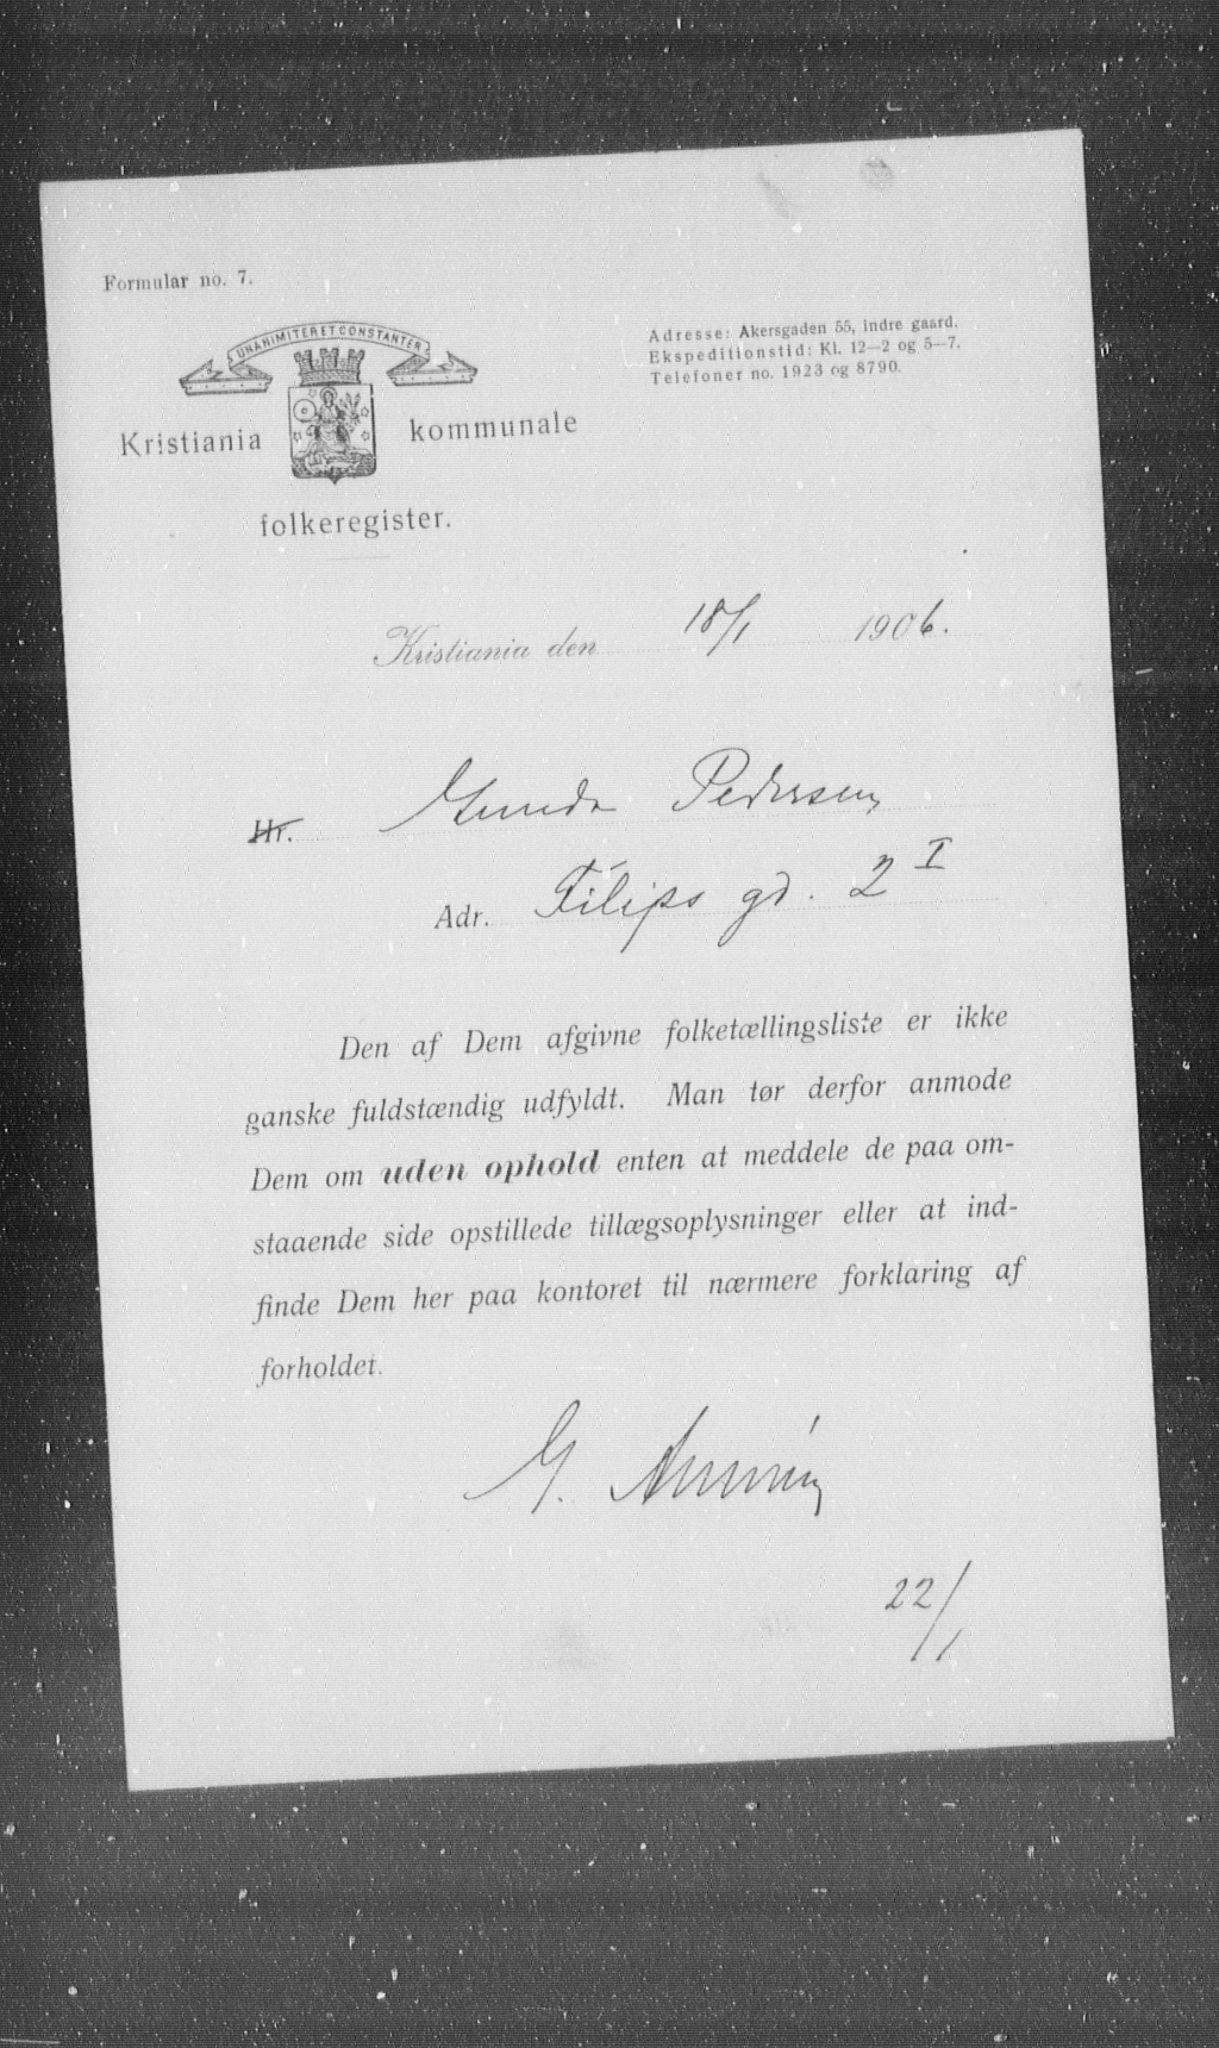 Formular no. 7.
UNANIMITER ET CONSTANTER
Adresse: Akersgaden 55, indre gaard.
Ekspeditionstid: Kl. 12—2 og 5—7.
Telefoner no. 1923 og 8790.
Kristiania kommunale
folkeregister.
Kristiania den 18/1 1906.
Hr. Gunda Pedersen
Adr. Filips gd. 2 I
Den af Dem afgivne folketællingsliste er ikke
ganske fuldstændig udfyldt. Man tør derfor anmode
Dem om uden ophold enten at meddele de paa om-
staaende side opstillede tillægsoplysninger eller at ind-
finde Dem her paa kontoret til nærmere forklaring af
forholdet.
G.
22/1